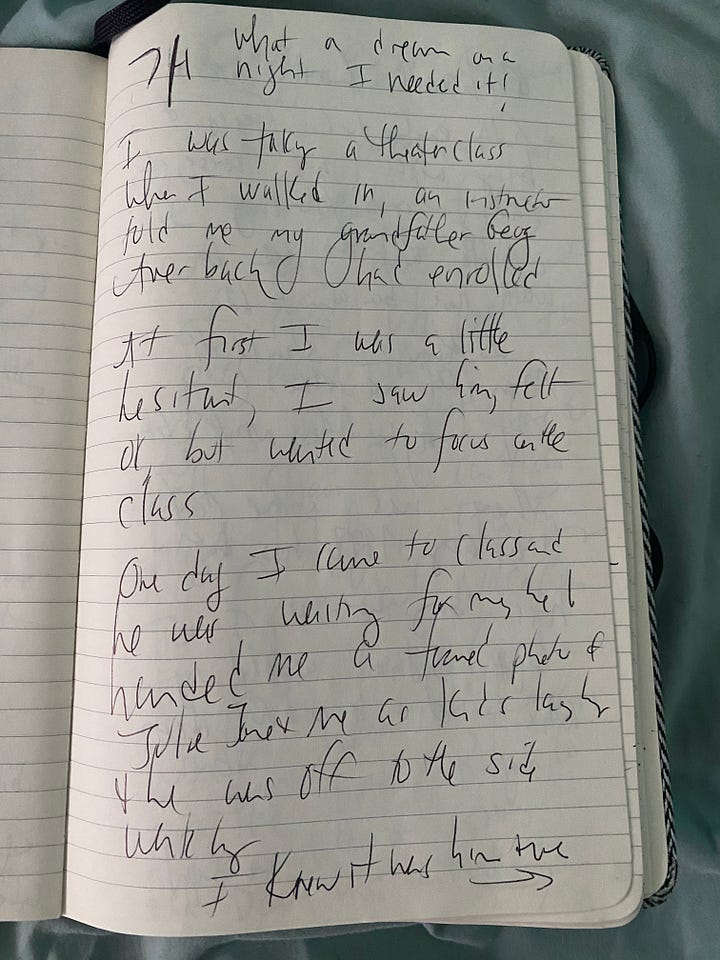 7/4 What a dream on a
night I needed it!
I was taking a theater class
When I walked in, an instructor
told me my grandfather
Averback had enrolled
At first I was a little
hesitant, I saw him, felt
ok, but wanted to focus on the
class
One day I came to class and
he was waiting for me, he
handed me a framed photo of
Julie me as kids
& he was off to the side
I knew it was him